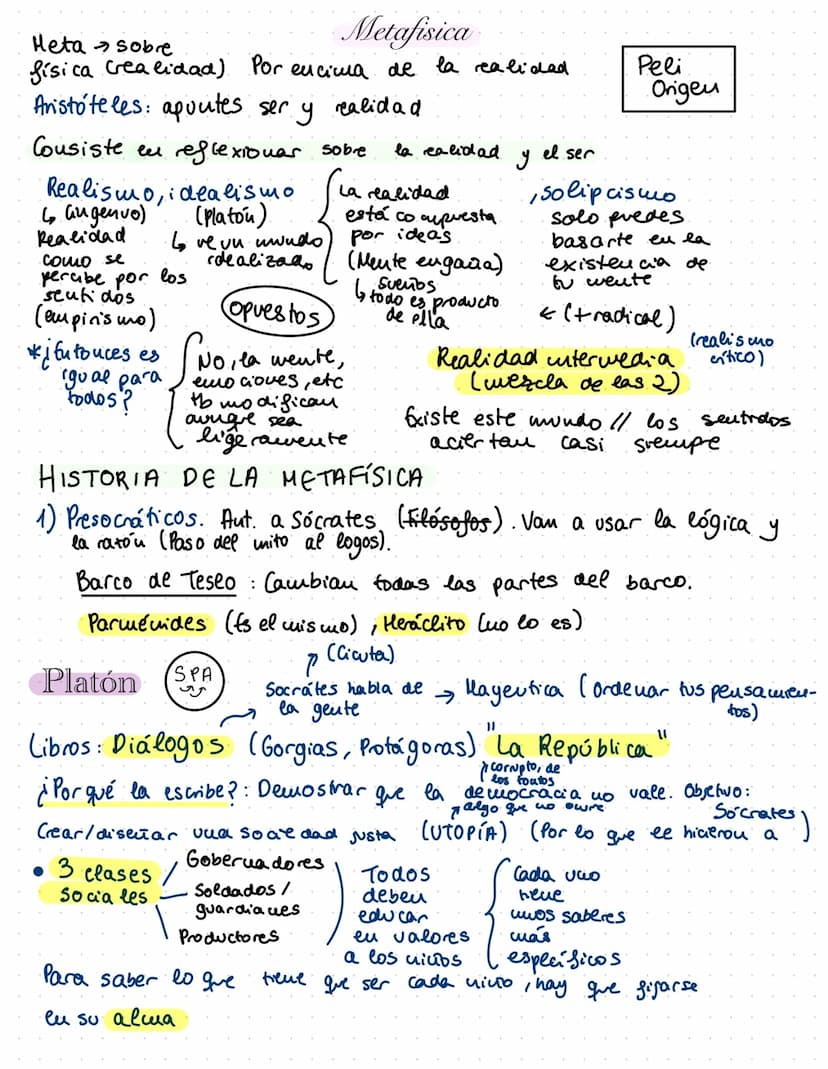 Metafísica
Meta → sobre
física (realidad) Por encima de la realidad
Peli
Origen
Aristóteles: apuntes ser y realidad
Consiste en reflexionar sobre la realidad y el ser
Realismo, idealismo
↳ (ingenuo)
Realidad
como se
percibe por los
sentidos
(empirismo)
(Platón)
↳ ve un mundo
idealizado
La realidad
está compuesta
por ideas
(Mente engaña)
↳ sueños
↳ todo es producto
de ella
, solipcismo
solo puedes
basarte en la
existencia de
tu mente
← (+ radical)
opuestos
*¿Entonces es
igual para
todos?
No, la mente,
emociones, etc
lo modifican
aunque sea
ligeramente
Realidad intermedia (realismo
(mezcla de las 2) crítico)
Existe este mundo // los sentidos
aciertan casi siempre
HISTORIA DE LA METAFÍSICA
1) Presocráticos. Aut. a Sócrates (filósofos). Van a usar la lógica y
la razón (Paso del mito al logos).
Barco de Teseo : Cambian todas las partes del barco.
Parménides (Es el mismo), Heráclito (no lo es)
Platón
SPA
↗ (Cicuta)
Socrátes habla de → Mayeutica (ordenar tus pensamien-
la gente tos)
Libros: Diálogos (Gorgias, Protágoras) "La República"
↗ corrupto, de
los tontos
¿Por qué la escribe?: Demostrar que la democracia no vale. Objetivo:
↗ algo que no ocurre
Crear/diseñar una sociedad justa (UTOPÍA) (Por lo que le hicieron a Sócrates)
• 3 clases
sociales
Gobernadores
Soldados /
guardianes
Productores
Todos
deben
educar
en valores
a los niños
Cada uno
tiene
unos saberes
más
específicos
Para saber lo que tiene que ser cada niño, hay que fijarse
en su alma